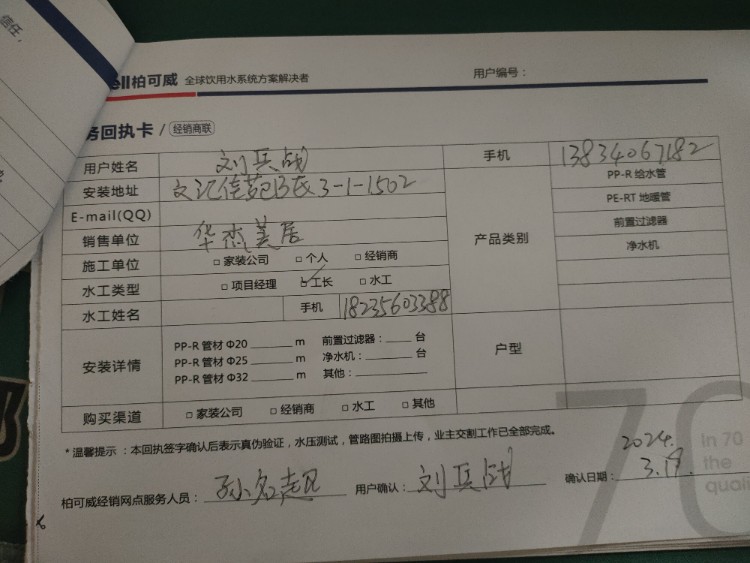 信任,
ell柏可威 全球饮用水系统方案解决者 用户编号：
务回执卡 / 经销商联
用户姓名 刘兵战 手机 13834067182
安装地址 B区3-1-1502 产品类别 PP-R 给水管
E-mail(QQ) PE-RT 地暖管
销售单位 华杰美居 前置过滤器
施工单位 □ 家装公司 □ 个人 □ 经销商 净水机
水工类型 □ 项目经理 ☑ 工长 □ 水工
水工姓名 手机 18235603388
安装详情 PP-R 管材 Φ20 ______ m 前置过滤器：____ 台 户型
PP-R 管材 Φ25 ______ m 净水机：____ 台
PP-R 管材 Φ32 ______ m 其他：________
购买渠道 □ 家装公司 □ 经销商 □ 水工 □ 其他
* 温馨提示 ：本回执签字确认后表示真伪验证，水压测试，管路图拍摄上传，业主交割工作已全部完成。
70
In 70
the
quali
柏可威经销网点服务人员： 用户确认：刘兵战 确认日期：2024.3.19.